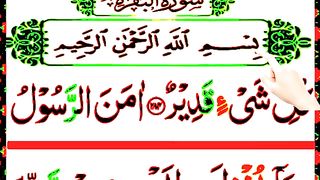 سورة البقرة
بِسْمِ اللّٰهِ الرَّحْمٰنِ الرَّحِيْمِ
كُلِّ شَیْءٍ قَدِیْرٌ ۝۲۸۴ اٰمَنَ الرَّسُوْلُ